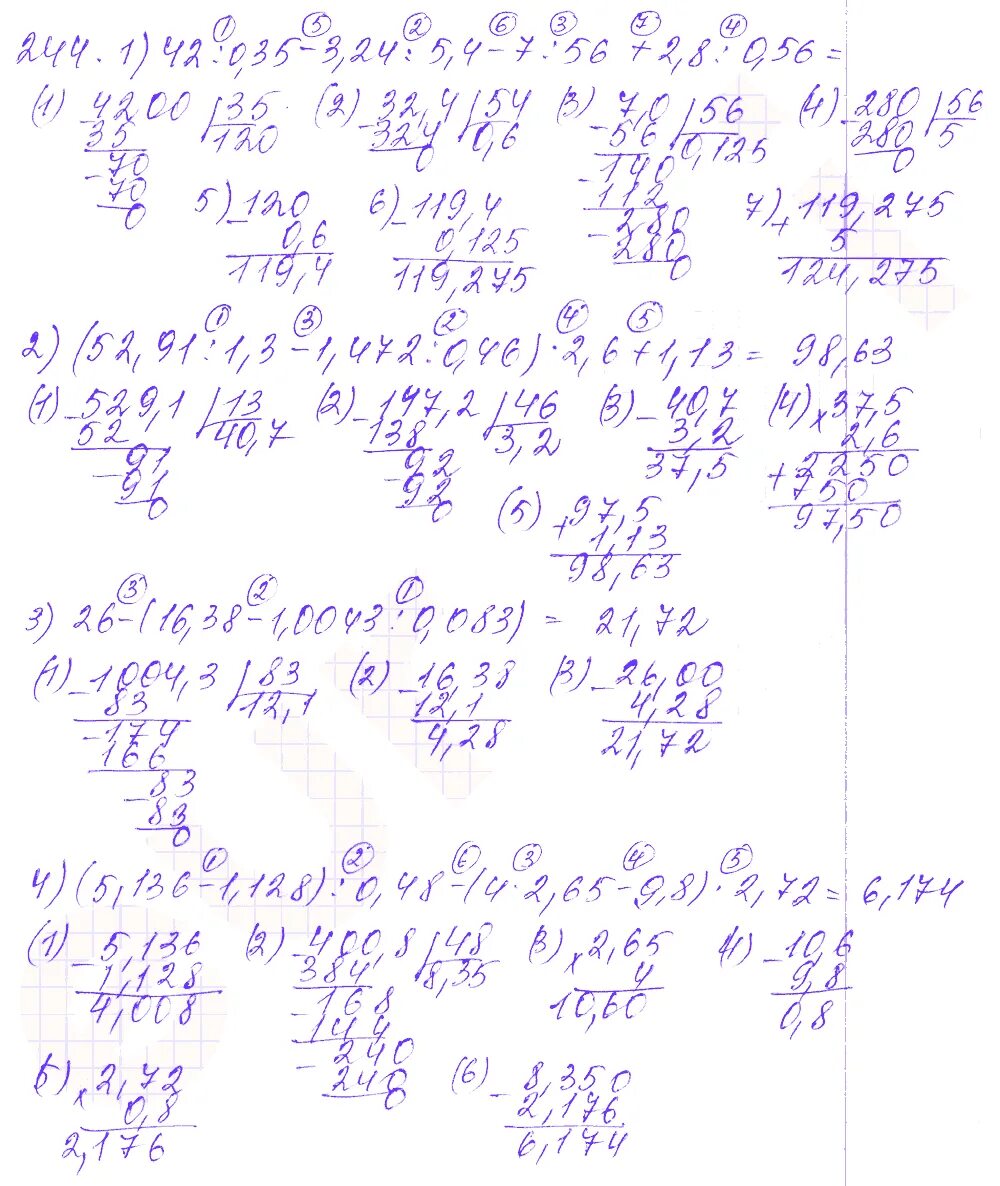 ① ⑤ ② ⑥ ③ ⑦ ④
244. 1) 42 : 0,35 - 3,24 : 5,4 - 7 : 56 + 2,8 : 0,56 =
(1) 4200 | 35 (2) 32,4 | 54 (3) 7,0 | 56 (4) 280 | 56
- 35 120 - 324 0,6 - 56 0,125 - 280 5
- 70 0 - 140 0
70 112
0 - 280
280
0
5) - 120 6) - 119,4 7) + 119,275
0,6 0,125 5
119,4 119,275 124,275
① ③ ② ④ ⑤
2) (52,91 : 1,3 - 1,472 : 0,46) · 2,6 + 1,13 = 98,63
(1) - 529,1 | 13 (2) - 147,2 | 46 (3) - 40,7 (4) × 37,5
52 40,7 138 3,2 3,2 2,6
- 91 - 92 37,5 + 2250
91 92 750
0 0 97,50
(5) + 97,5
1,13
98,63
③ ② ①
3) 26 - (16,38 - 1,0043 : 0,083) = 21,72
(1) - 1004,3 | 83 (2) - 16,38 (3) - 26,00
83 12,1 12,1 4,28
- 174 4,28 21,72
166
- 83
83
0
① ② ⑥ ③ ④ ⑤
4) (5,136 - 1,128) : 0,48 - (4 · 2,65 - 9,8) · 2,72 = 6,174
(1) - 5,136 (2) - 400,8 | 48 (3) × 2,65 (4) - 10,6
1,128 384 8,35 4 9,8
4,008 - 168 10,60 0,8
144
- 240
240
0
(5) × 2,72 (6) - 8,350
0,8 2,176
2,176 6,174